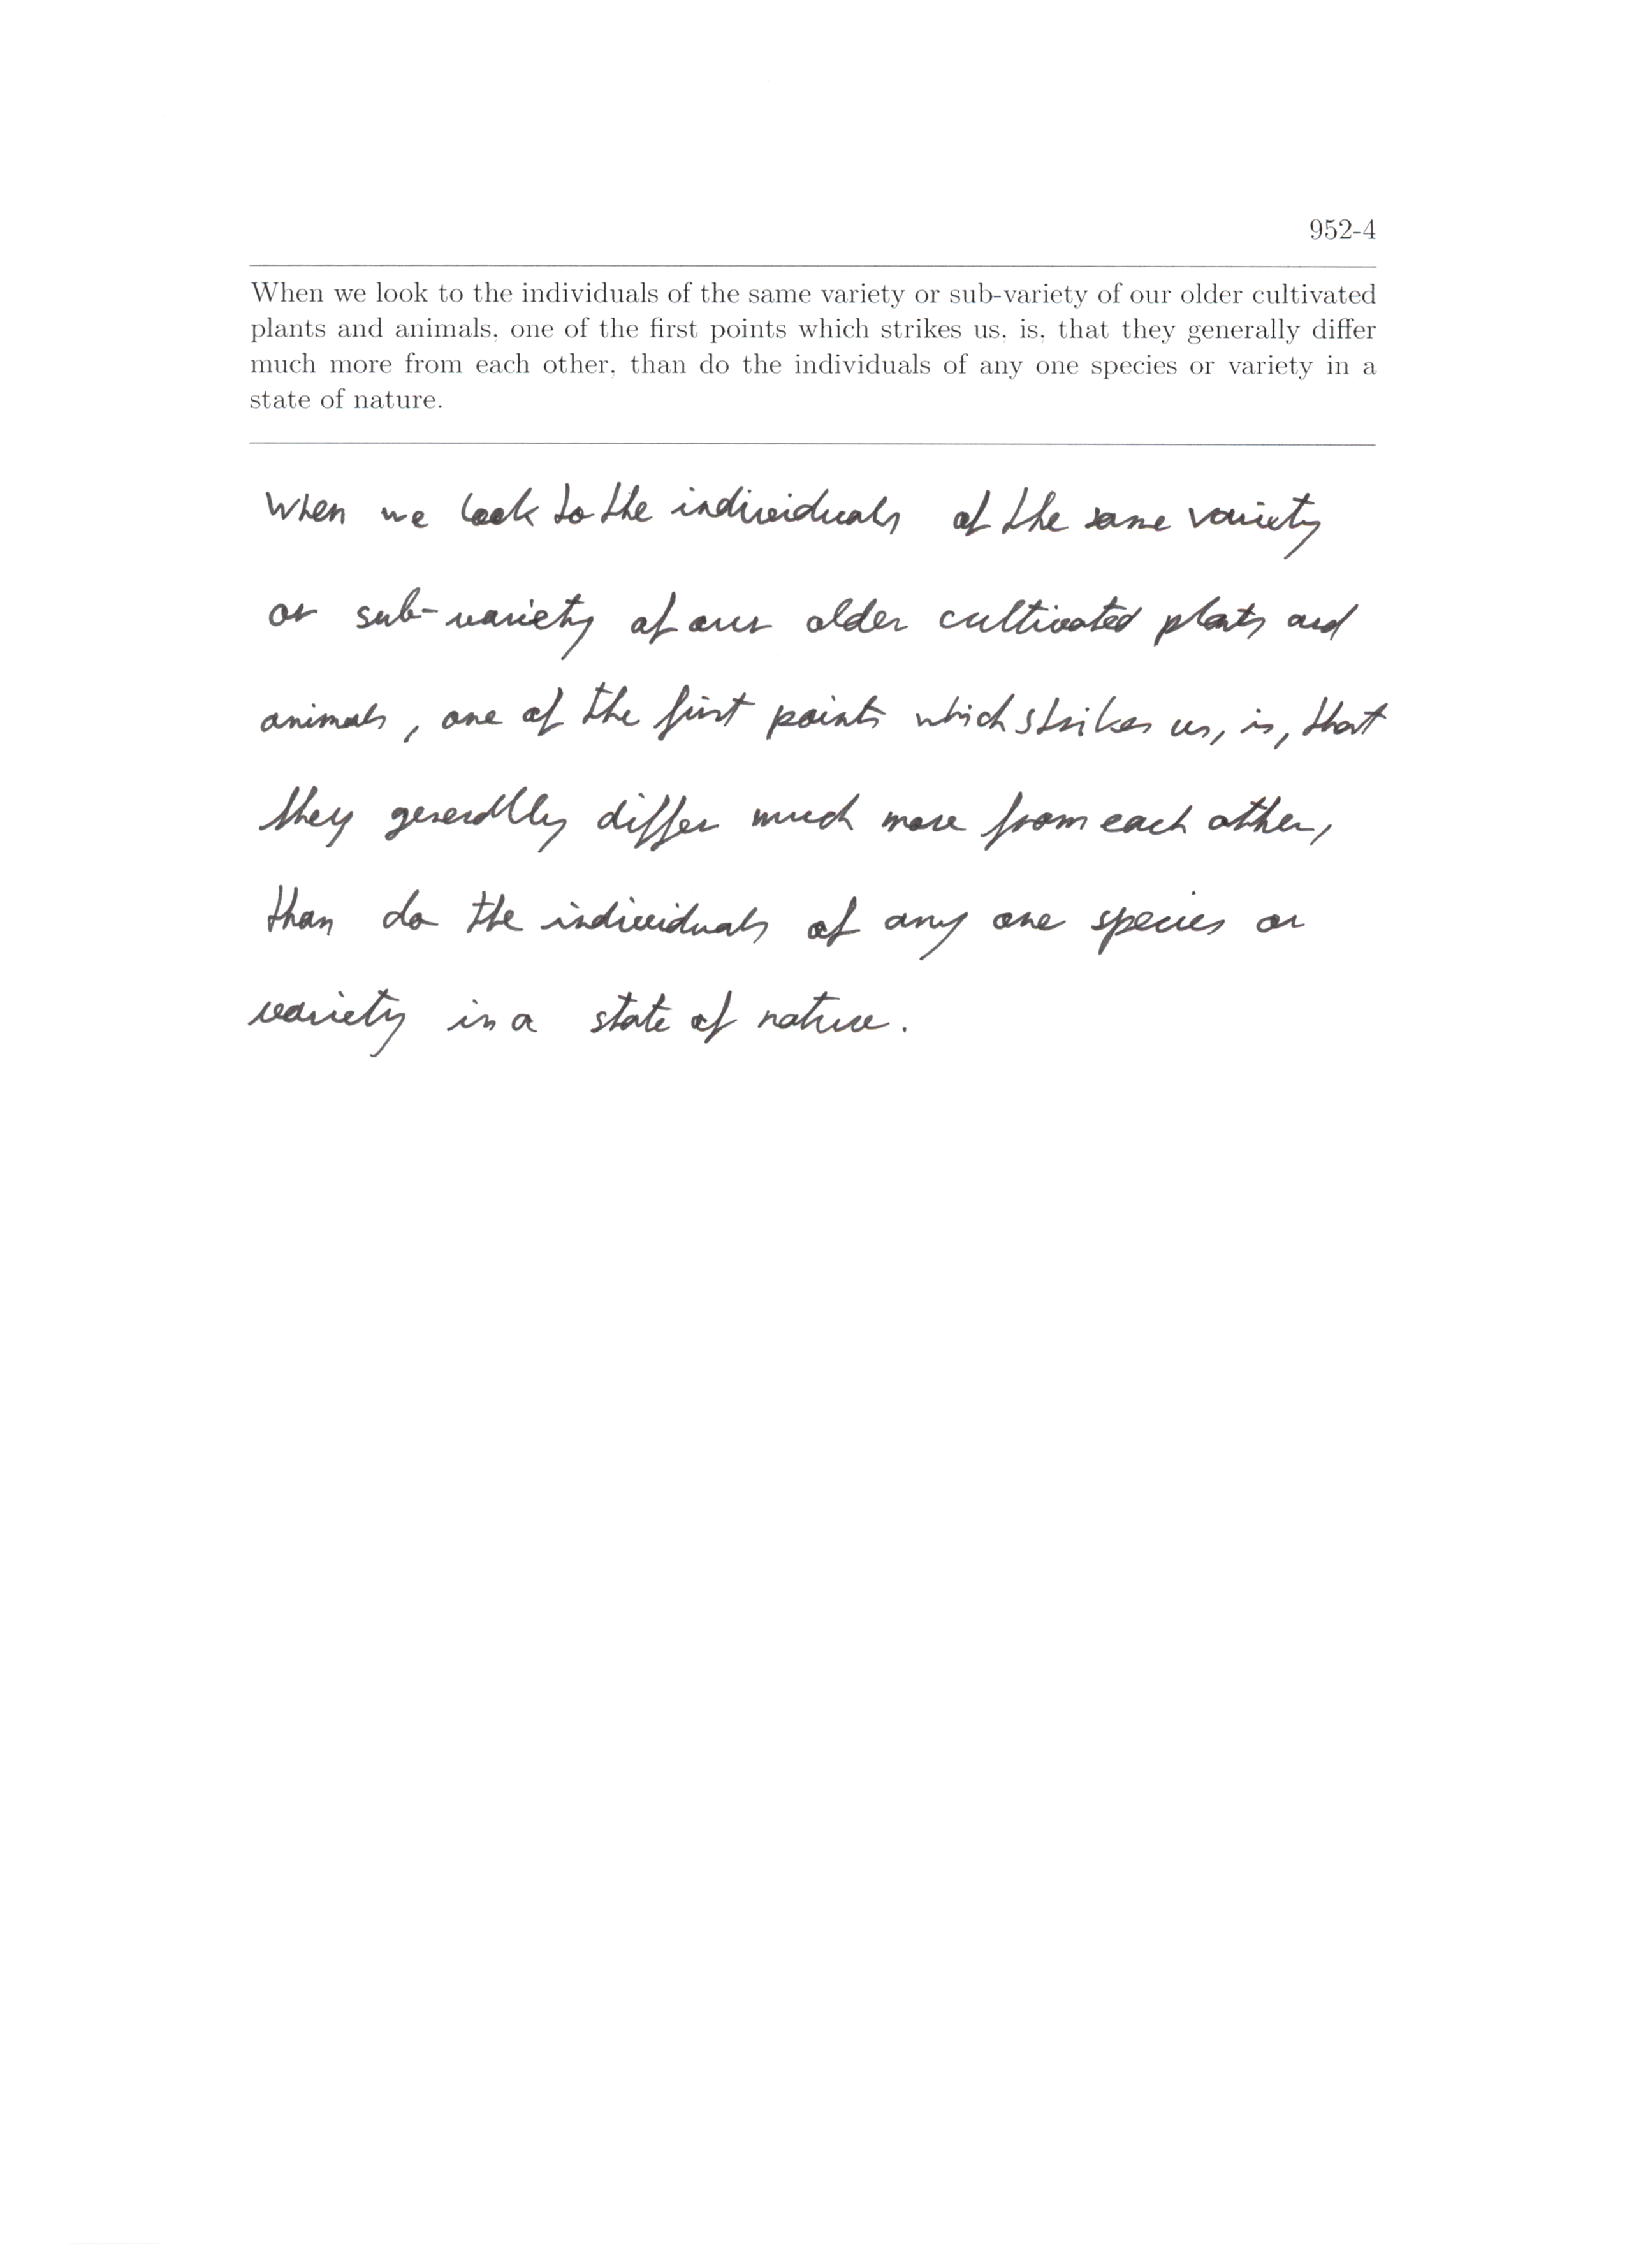 952-4
When we look to the individuals of the same variety or sub-variety of our older cultivated
plants and animals, one of the first points which strikes us, is, that they generally differ
much more from each other, than do the individuals of any one species or variety in a
state of nature.
When we look to the individuals of the same variety
or sub-variety of our older cultivated plants and
animals, one of the first points which strikes us, is, that
they generally differ much more from each other,
than do the individuals of any one species or
variety in a state of nature.